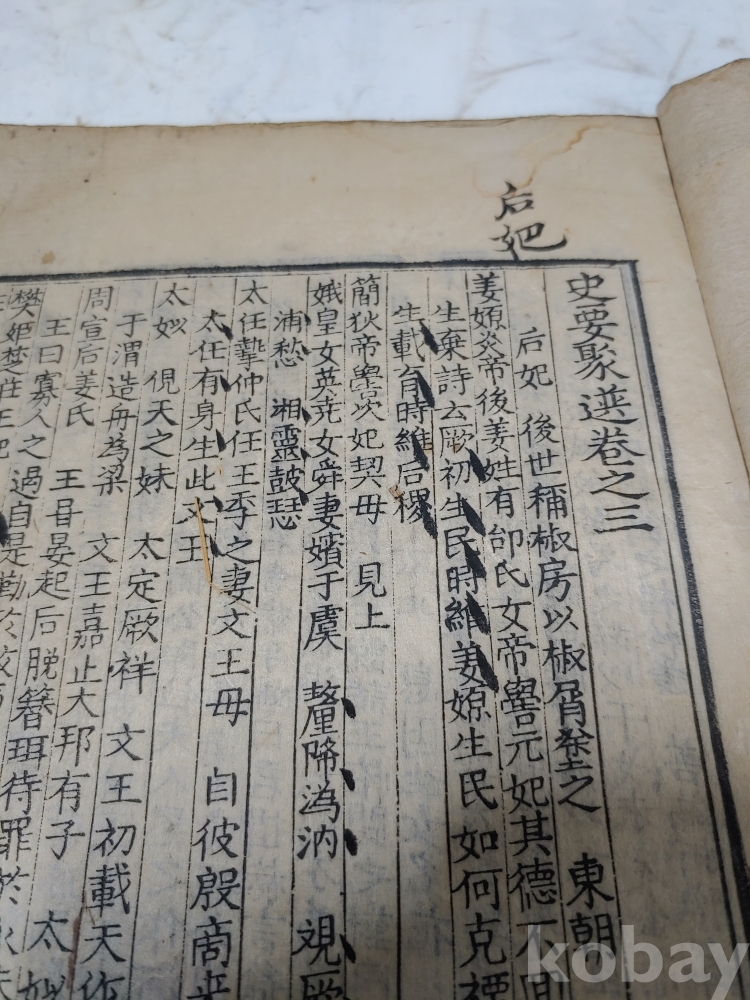 后妃
史要聚選卷之三
后妃 後世稱椒房以椒屑塗之 東朝
姜嫄炎帝後姜姓有邰氏女帝嚳元妃其德不
生棄詩云厥初生民時維姜嫄生民如何克禋
生載育時維后稷
簡狄帝嚳次妃契母 見上
娥皇女英堯女舜妻嬪于虞 釐降潙汭 視厥
浦愁 湘靈鼓瑟
太任摯仲氏任王季之妻文王母 自彼殷商來
太任有身生此文王
太姒 俔天之妹 太定厥祥 文王初載天作
于渭造舟為梁 文王嘉止大邦有子 太姒
周宣后姜氏 王甞晏起后脫簪珥待罪於永
王曰寡人之過自是勤於政
樊姬楚莊王妃
kobay